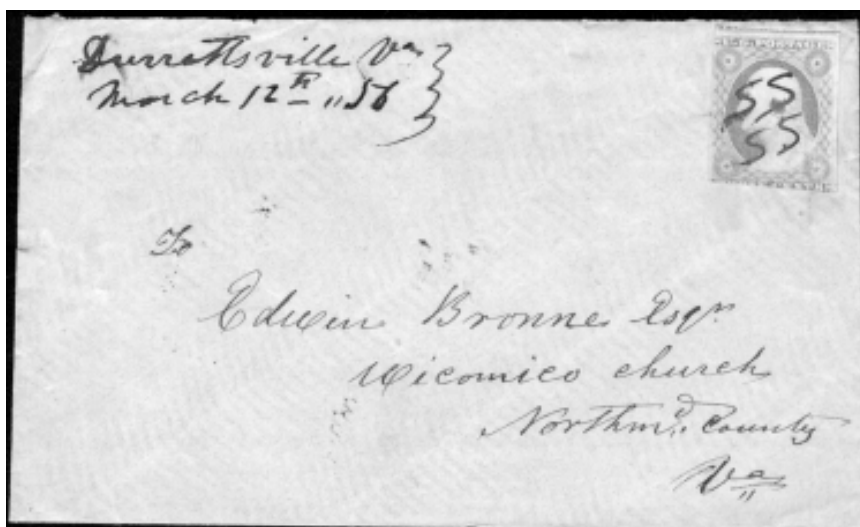 Durrattsville Va
March 12th „ 56
SS
SS
To
Edwin Bronne Esqr
Wicomico church
Northmd. County
Va